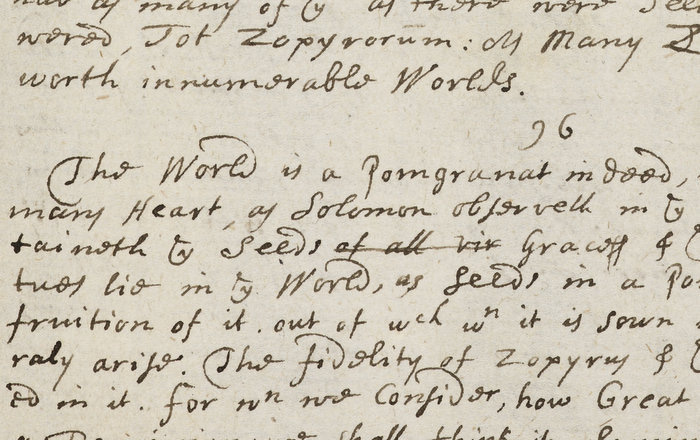 as many of yͤ as there were
wered, Tot Zopyrorum: As Many
worth innumerable Worlds.
96
The World is a Pomgranat indeed,
mans Heart, as Solomon observeth in yͤ
taineth yͤ Seeds of all vir Graces &
tues lie in yͤ World, as Seeds in a Po
fruition of it. out of wch wn it is sown
raly arise. The fidelity of Zopyrus &
ed in it. For wn we Consider, how Great
shall think it